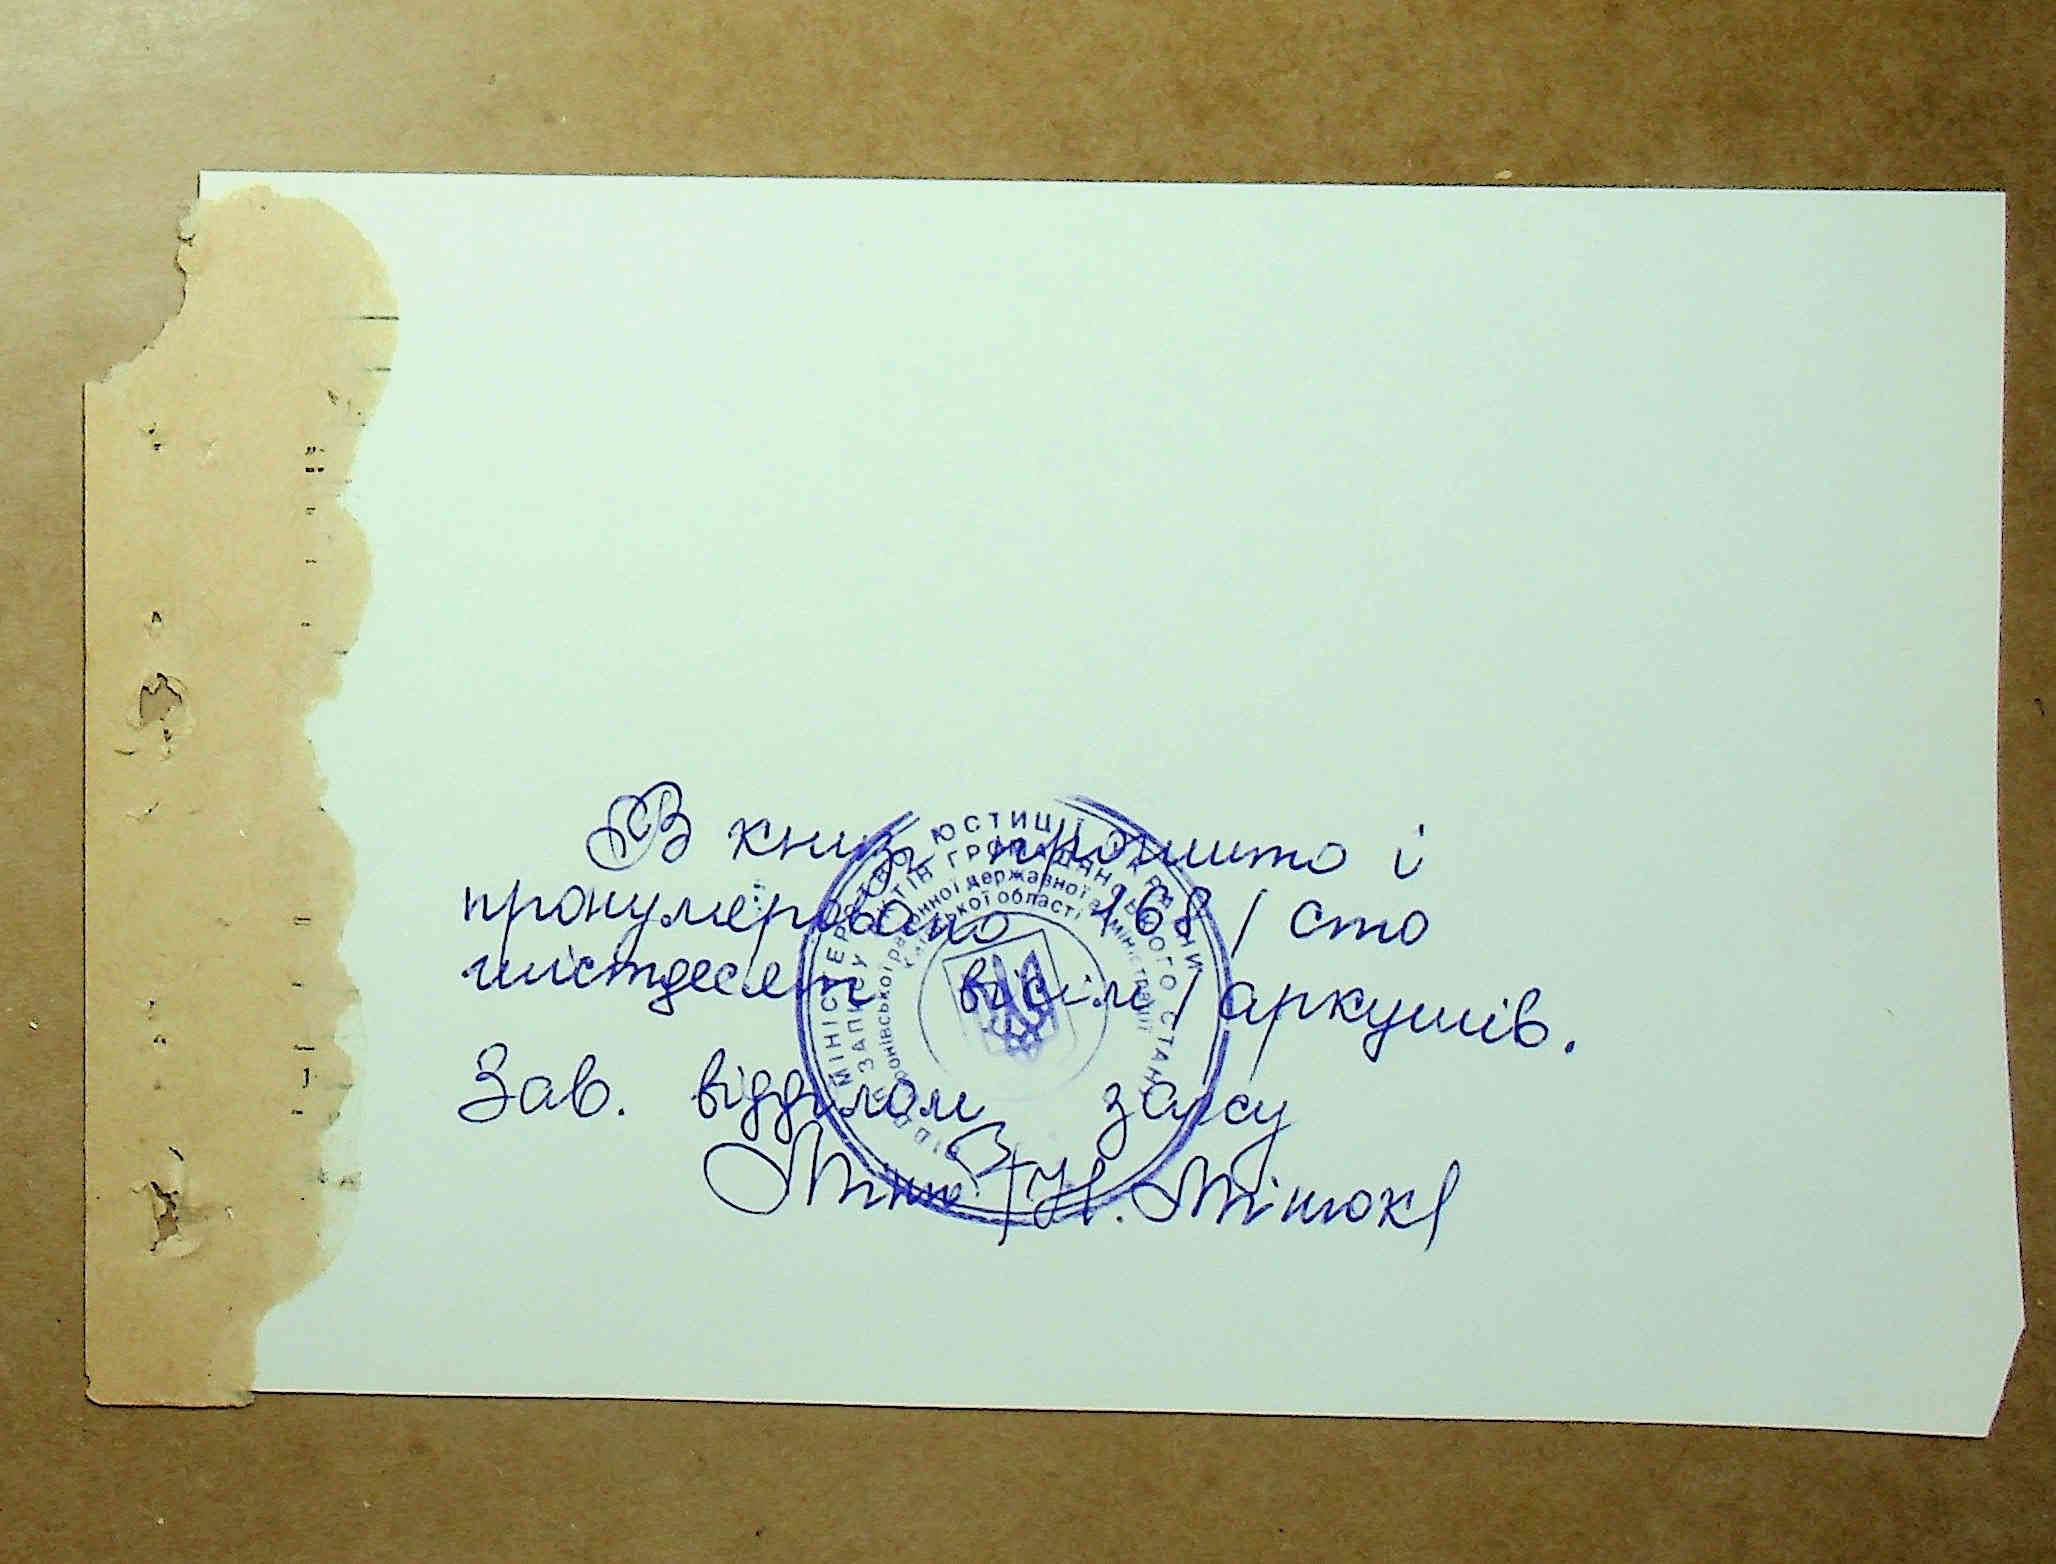 В книзі прошито і
пронумеровано 168 / сто
шістдесят вісім / аркушів.
Зав. відділом загсу
/Н. Мінюк/
МІНІСТЕРСТВО ЮСТИЦІЇ УКРАЇНИ
ВІДДІЛ ЗАПИСУ АКТІВ ГРОМАДЯНСЬКОГО СТАНУ
районної державної адміністрації
Київської області